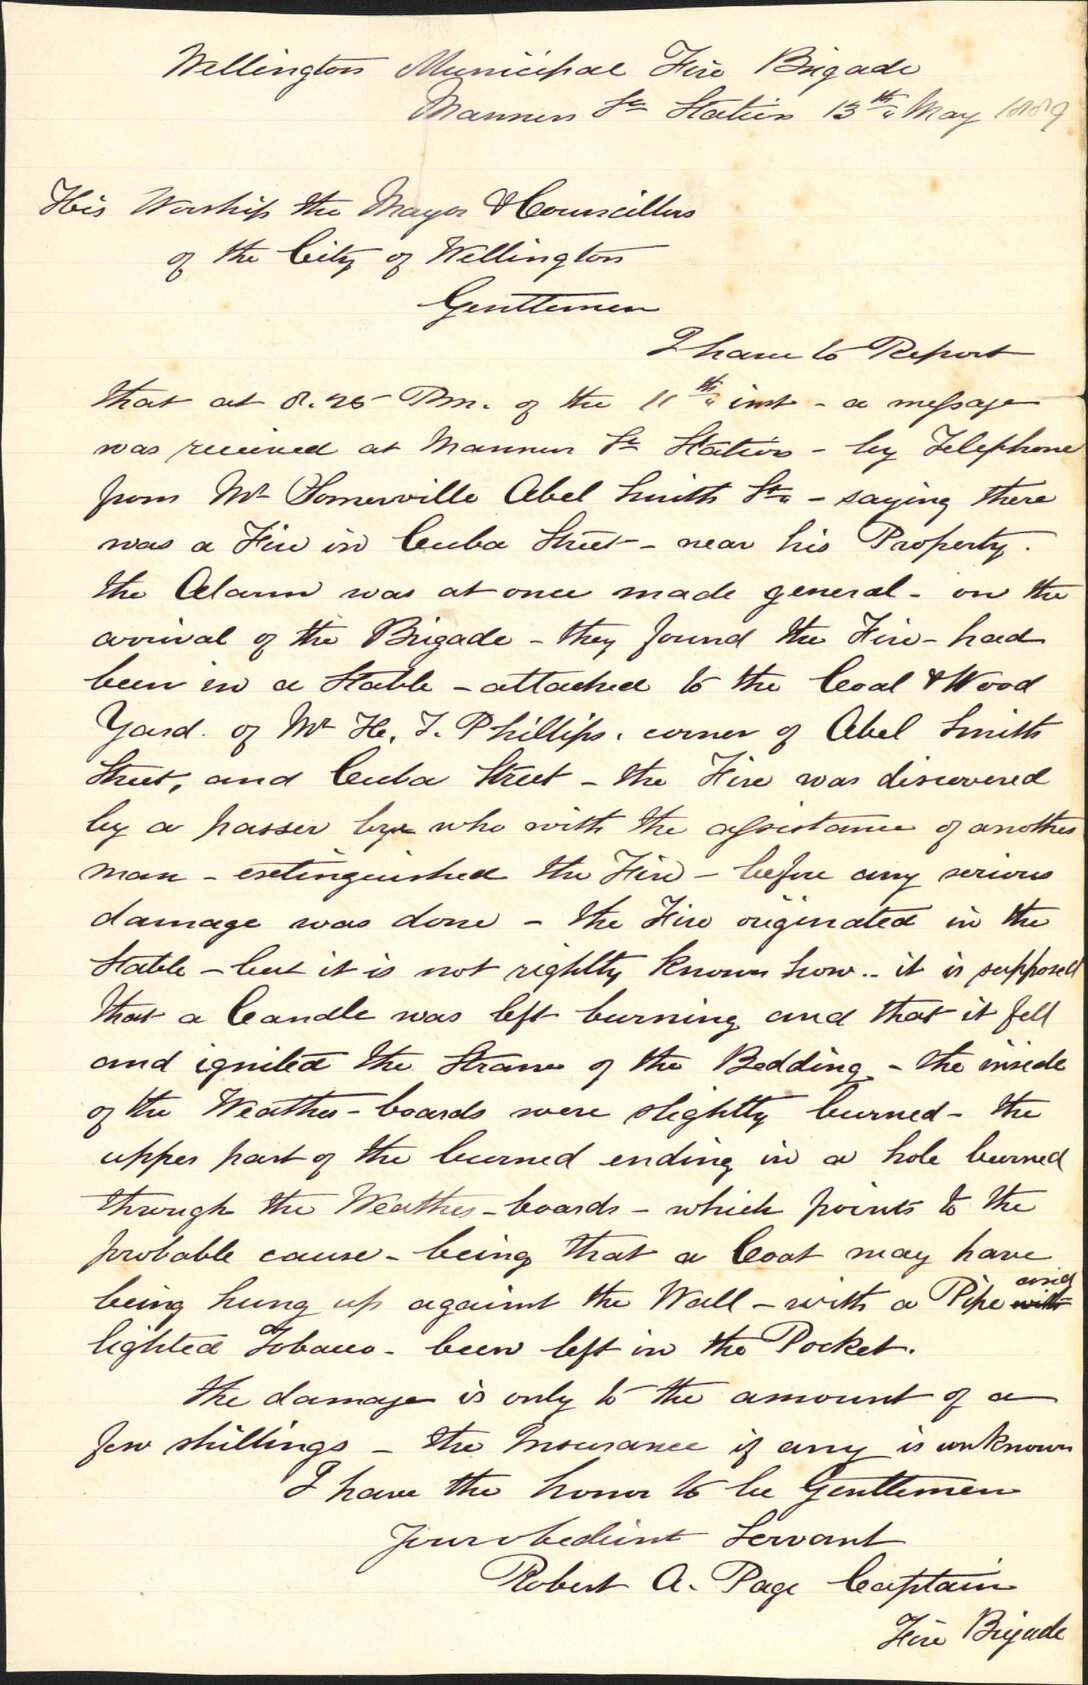 Wellington Municipal Fire Brigade
Manners St Station 13th May 1889
His Worship the Mayor & Councillors
of the City of Wellington
Gentlemen
I have to Report
that at 8.25 Pm. of the 11th inst - a message
was received at Manners St Station - by Telephone
from Mr Somerville Abel Smith St - saying there
was a Fire in Cuba Street - near his Property.
the Alarm was at once made general - on the
arrival of the Brigade - they found the Fire - had
been in a Stable - attached to the Coal & Wood
Yard. of Mr H. J. Phillips. corner of Abel Smith
Street, and Cuba Street - the Fire was discovered
by a passer bye who with the assistance of another
man - extinguished the Fire - before any serious
damage was done - the Fire originated in the
Stable - but it is not rightly known how - it is supposed
that a Candle was left burning and that it fell
and ignited the Straw of the Bedding - the inside
of the Weather-boards were slightly burned - the
upper part of the burned ending in a hole burned
through the Weather-boards - which points to the
probable cause - being that a Coat may have
being hung up against the Wall - with a Pipe and with
lighted Tobacco - been left in the Pocket.
the damage is only to the amount of a
few shillings - the Insurance if any is unknown
I have the honor to be Gentlemen
Your obedient Servant
Robert A. Page Captain
Fire Brigade